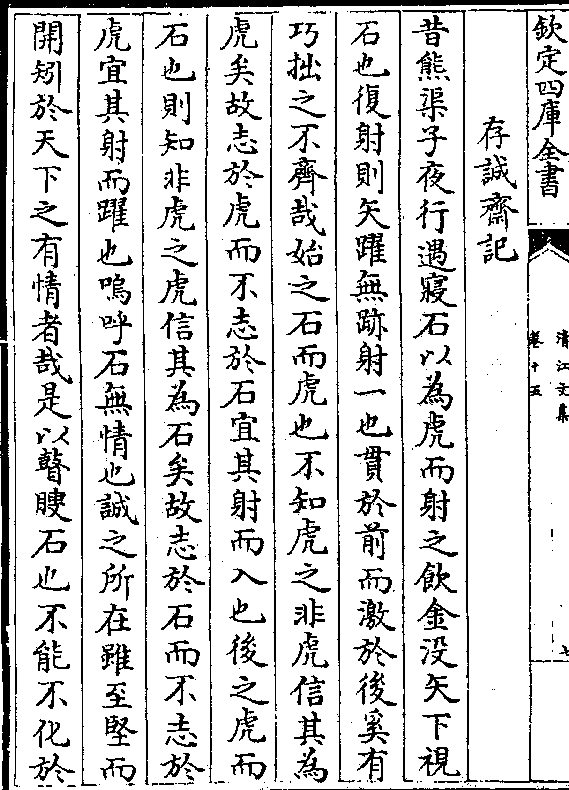 欽定四庫全書
清江文集
卷十五
七
存誠齋記
昔熊渠子夜行遇寢石以為虎而射之飲金没矢下視
石也復射則矢躍無跡射一也貫於前而激於後奚有
巧拙之不齊哉始之石而虎也不知虎之非虎信其為
虎矣故志於虎而不志於石宜其射而入也後之虎而
石也則知非虎之虎信其為石矣故志於石而不志於
虎宜其射而躍也嗚呼石無情也誠之所在雖至堅而
開矧於天下之有情者哉是以瞽瞍石也不能不化於